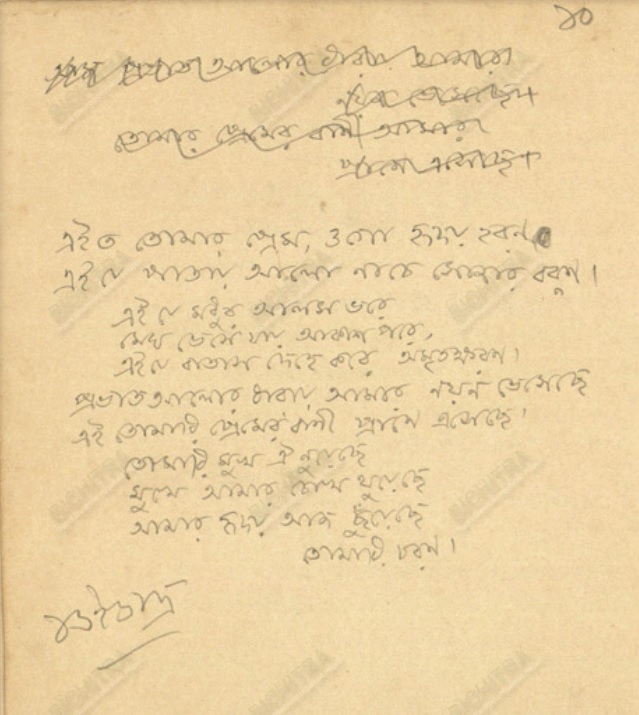 ১০
প্রভাত আলোর ধারায় আমার
নয়ন ভেসেছে।
তোমার প্রেমের বাণী আমার
প্রাণে এসেছে।
এইত তোমার প্রেম, ওগো হৃদয় হরণ
এই যে পাতায় আলো নাচে সোনার বরণ।
এই যে মধুর আলস ভরে
মেঘ ভেসে যায় আকাশ পরে,
এই যে বাতাস দেহে করে অমৃতক্ষরণ।
প্রভাত আলোর ধারায় আমার নয়ন ভেসেছে
এই তোমারি প্রেমের বাণী প্রাণে এসেছে।
তোমারি মুখ ঐ নুয়েছে
মুখে আমার চোখ থুয়েছে
আমার হৃদয় আজ ছুঁয়েছে
তোমারি চরণ।
১৬ই ভাদ্র
BICHITRA